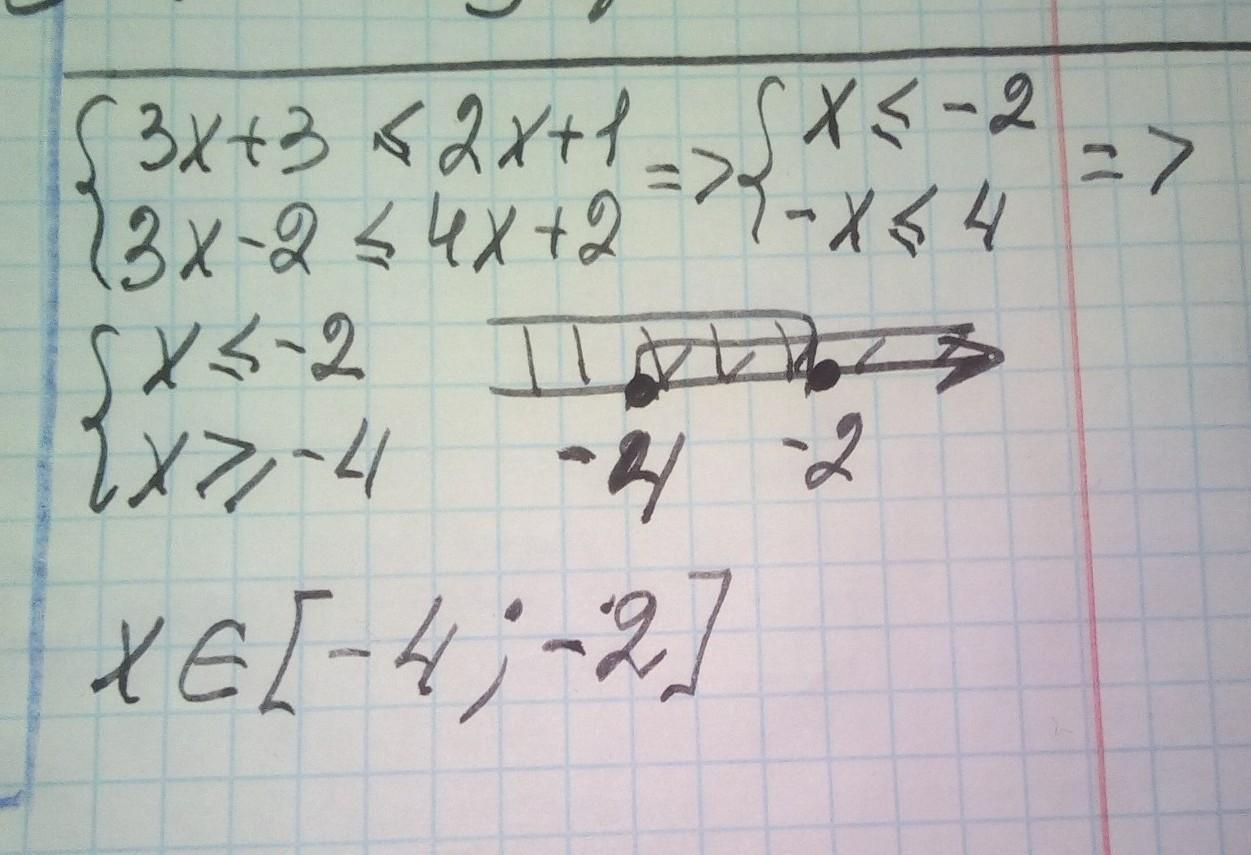 {3x+3 ≤ 2x+1 => {x ≤ -2 =>
{3x-2 ≤ 4x+2 {-x ≤ 4
{x ≤ -2
{x ≥ -4 -4 -2
x ∈ [-4; -2]